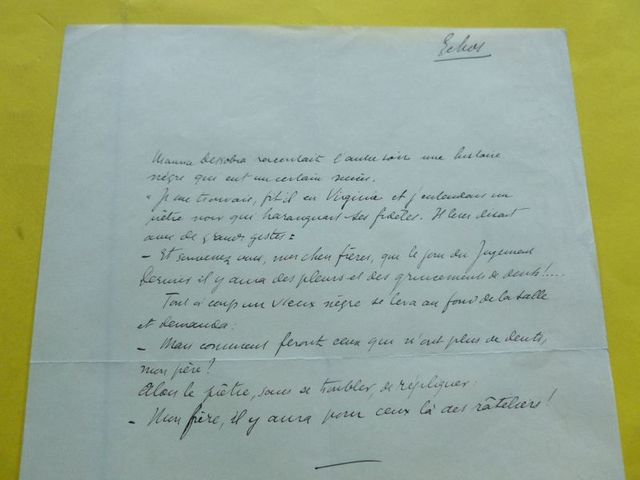 Echos
Maurice Dekobra racontait l'autre soir une histoire
nègre qui eut un certain succès.
« Je me trouvais, fit-il en Virginie et j'entendais un
prêtre noir qui haranguait ses fidèles. Il leur disait
avec de grands gestes :
- Et souvenez vous, mes chers frères, que le jour du Jugement
Dernier il y aura des pleurs et des grincements de dents !....
Tout à coup un vieux nègre se leva au fond de la salle
et demanda :
- Mais comment feront ceux qui n'ont plus de dents,
mon père ?
Alors le prêtre, sans se troubler, de répliquer :
- Mon frère, il y aura pour ceux là des râteliers !